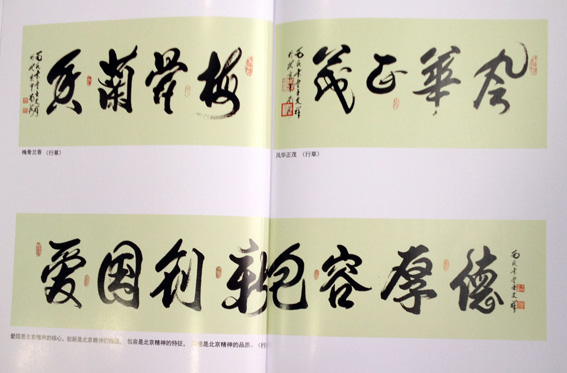 梅骨蘭香
梅骨兰香 （行草）
风華正茂
风华正茂 （行草）
爱国创新包容厚德
爱国是北京精神的核心，创新是北京精神的 包容是北京精神的特征， 是北京精神的品质。（行